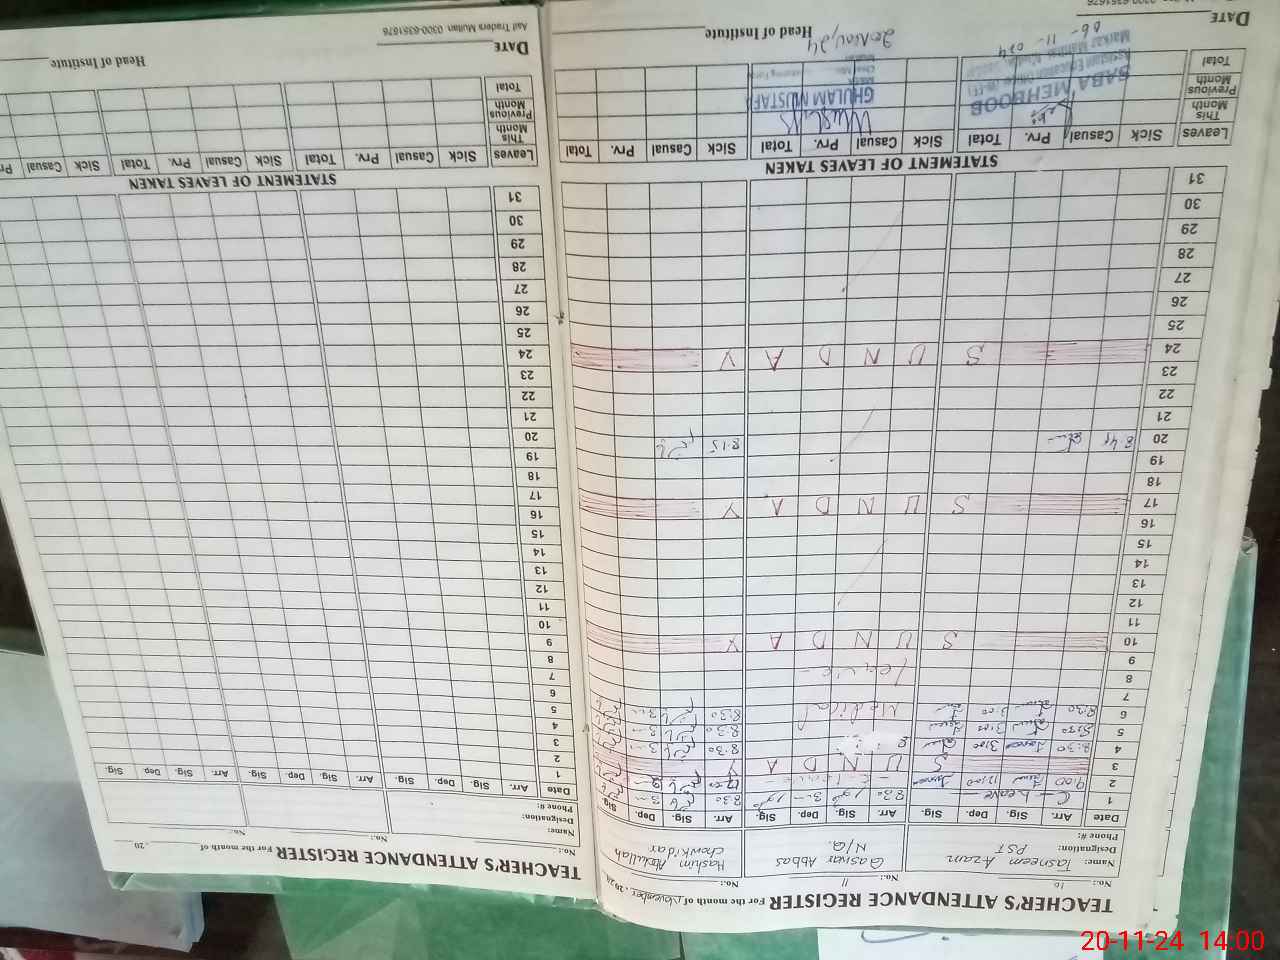 TEACHER'S ATTENDANCE REGISTER For the month of November, 20
No.: 10 No.: 11 No.:
Name: Tasneem Azam Qasivar Abbas Hashim Abdullah
Designation: PST N/Q. chowkidar
Phone #:
Date Arr. Sig. Dep. Sig. Arr. Sig. Dep. Sig. Arr. Sig. Dep. Sig.
1 C Leave 8:30 8:30
2 9:00 12:00 - C-Leave - 12:00
3 S U N D A Y
4 8:30 3:00 8:30
5 3:00 8:30
6 8:30 3:00 Medical 8:30
7
8 leave -
9
10 S U N D A Y
11
12
13
14
15
16
17 S U N D A Y
18
19
20 8:45 8:15
21
22
23
24 S U N D A Y
25
26
27
28
29
30
31
STATEMENT OF LEAVES TAKEN
Leaves Sick Casual Prv. Total Sick Casual Prv. Total Sick Casual Prv. Total
This Month
Previous Month
Total
SABA MEHBOOB
Assistant Education Officer
Markaz
06-11-024
GHULAM MUSTAFA
20 Nov, 24
DATE Head of Institute
TEACHER'S ATTENDANCE REGISTER For the month of , 20
No.: No.: No.:
Name:
Designation:
Phone #:
Date Arr. Sig. Dep. Sig. Arr. Sig. Dep. Sig. Arr. Sig. Dep. Sig.
1
2
3
4
5
6
7
8
9
10
11
12
13
14
15
16
17
18
19
20
21
22
23
24
25
26
27
28
29
30
31
STATEMENT OF LEAVES TAKEN
Leaves Sick Casual Prv. Total Sick Casual Prv. Total Sick Casual
This Month
Previous Month
Total
DATE Head of Institute
Asif Traders Multan 0300-6351676
20-11-24 14:00